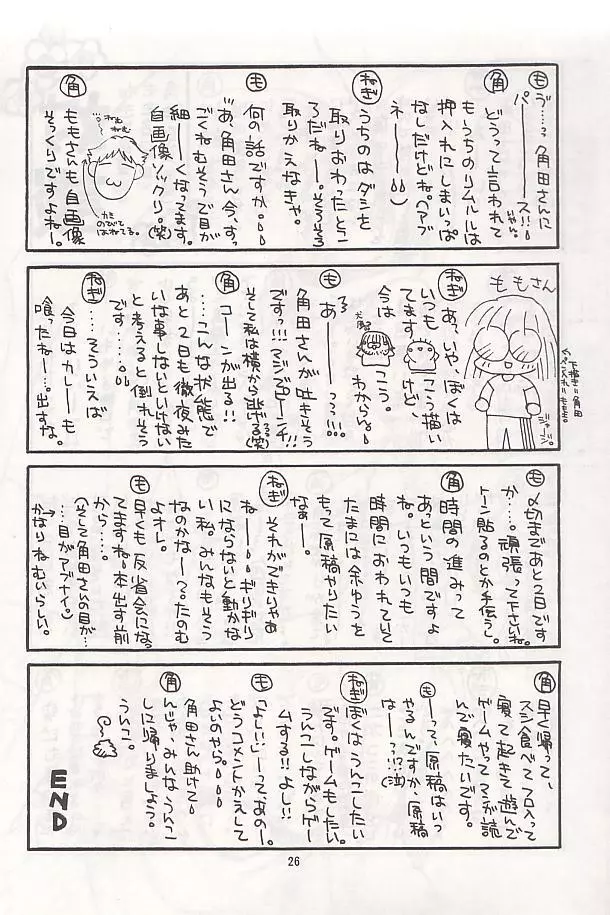 も う゛…っ角田さんに
パーース!!
角 どうって言われて
もうちのリムルルは
押入れにしまいっぱ
なしだけどね。(アブ
ネーー)
ねぎ うちのはダシを
取りおわったとこ
ろだねー。そろそろ
取りかえなきゃ。
も 何の話ですか。
あ、角田さん今、すっ
ごくねむそうで目が
細ーーくなってます。
自画像ソックリ。(笑)
ねむ
ねむ
カミ
のびて
はねてる。
角 ももさんも自画像
そっくりですよねー。
ももさん
ジャージ。
下描き:角田
ペン入れ:ももき。
ねぎ あっ、いや、ぼくは
いつも こう描い
てます けど、
今は こう。
わからん。
も あーーっっ!!!
角田さんが吐きそう
ですっ!!!マジでピーンチ!!
そして私は横から逃げる(笑)
角 コーンが出る!!
…こんな状態で
あと2日も徹夜みた
いな事しないといけない
と考えると倒れそう
です……。
ねぎ ……そういえば
今日はカレーーも
喰ったねー…。出すな。
も 〆切まであと2日です
か…。頑張って下さいね。
トーン貼るのとか手伝うし。
角 時間の進みって
あっという間ですよ
ね。いつもいつも
時間におわれていて
たまには余ゆうを
もって原稿やりたい
なぁー。
ねぎ それができりゃぁ
ねーーギリギリ
にならないと動かな
い私。みんなもそう
なのかなー?たのむ
よオレ。
も 早くも反省会になっ
てますね。本出す前
から…。
(そして角田さんの目が…
…目がアブナイ。)
→かなりねむいらしい。
角 早く帰って、
スシ食べてフロ入って
寝て起きて遊んで
ゲームやってマンガ読
んで寝たいです。
も ーって、原稿はいつ
やるんですか、原稿
はーっっ!!?(泣)
ねぎ ぼくはうんこしたい
です。ゲームもしたい。
うんこしながらゲー
ムする!!よし!!
も 「よし!」ーってあのー。
どうコメントかえして
よいのやら。
角田さん助けて。
角 んじゃ、みんなうんこ
しに帰りましょう。
うんこ。
END
26